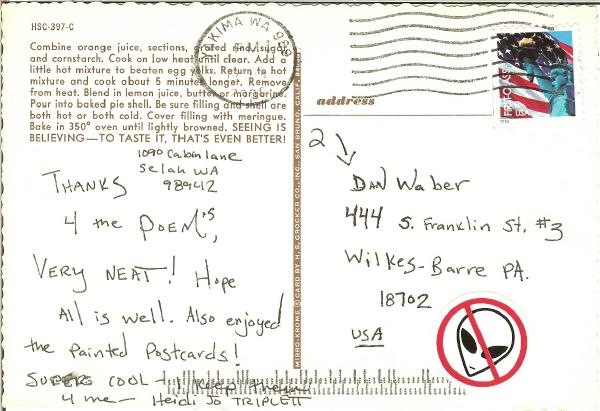 HSC-397-C
Combine orange juice, sections, grated rind, sugar
and cornstarch. Cook on low heat until clear. Add a
little hot mixture to beaten egg yolks. Return to hot
mixture and cook about 5 minutes longer. Remove
from heat. Blend in lemon juice, butter or margarine.
Pour into baked pie shell. Be sure filling and shell are
both hot or both cold. Cover filling with meringue.
Bake in 350° oven until lightly browned. SEEING IS
BELIEVING—TO TASTE IT, THAT'S EVEN BETTER!
1090 Cabin lane
Selah WA
98942
THANKS
4 the POEM'S,
VERY NEAT! Hope
All is well. Also enjoyed
the Painted Postcards!
SUPER COOL - I Keep them
4 me - Heidi Jo TRIPLETT
MIRRO-KROME ® CARD BY H. S. CROCKER CO., INC., SAN BRUNO, CALIF.
YAKIMA WA 989
USA
address
2
Dan Waber
444 S. Franklin St. #3
Wilkes-Barre PA.
18702
USA